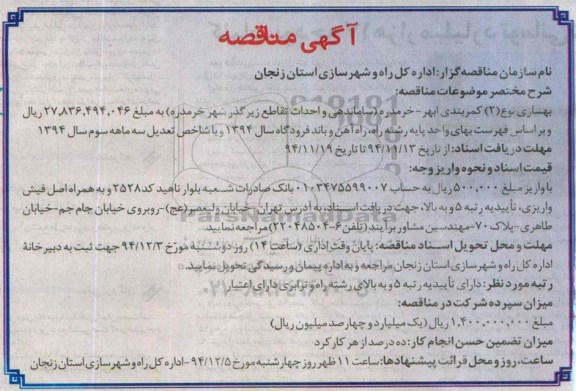 آگهی مناقصه
نام سازمان مناقصه گزار: اداره کل راه و شهرسازی استان زنجان
شرح مختصر موضوعات مناقصه:
بهسازی نوع (۲) کمربندی ابهر - خرمدره (ساماندهی و احداث تقاطع زیر گذر شهر خرمدره) به مبلغ ۲۷,۸۳۶,۴۹۴,۰۴۶ ریال
و براساس فهرست بهای واحد پایه رشته راه، راه آهن و باند فرودگاه سال ۱۳۹۴ و با شاخص تعدیل سه ماهه سوم سال ۱۳۹۴
مهلت دریافت اسناد: از تاریخ ۹۴/۱۱/۱۳ تا تاریخ ۹۴/۱۱/۱۹
قیمت اسناد و نحوه واریز وجه:
با واریز مبلغ ۵۰۰,۰۰۰ ریال به حساب ۰۱۰۳۴۷۵۵۹۹۰۰۷ بانک صادرات شعبه بلوار ناهید کد ۲۵۲۸ و به همراه اصل فیش
واریزی، تأییدیه رتبه ۵ و به بالا، جهت دریافت اسناد، به آدرس تهران - خیابان ولیعصر (عج) - روبروی خیابان جام جم - خیابان
طاهری - پلاک ۷۰ - مهندسین مشاور برآیند (تلفن ۶-۲۲۰۴۸۵۰۴) مراجعه نمایید.
مهلت و محل تحویل اسناد مناقصه: پایان وقت اداری (ساعت ۱۴) روز دوشنبه مورخ ۹۴/۱۲/۳ جهت ثبت به دبیرخانه
اداره کل راه و شهرسازی استان زنجان مراجعه و به اداره پیمان و رسیدگی تحویل نمایید.
رتبه مورد نظر: دارای تأییدیه رتبه ۵ و به بالای رشته راه و ترابری دارای اعتبار
میزان سپرده شرکت در مناقصه:
مبلغ ۱,۴۰۰,۰۰۰,۰۰۰ ریال (یک میلیارد و چهارصد میلیون ریال)
میزان تضمین حسن انجام کار: ده درصد از هر کارکرد
ساعت، روز و محل قرائت پیشنهادها: ساعت ۱۱ ظهر روز چهارشنبه مورخ ۹۴/۱۲/۵ - اداره کل راه و شهرسازی استان زنجان
ParsNamadData